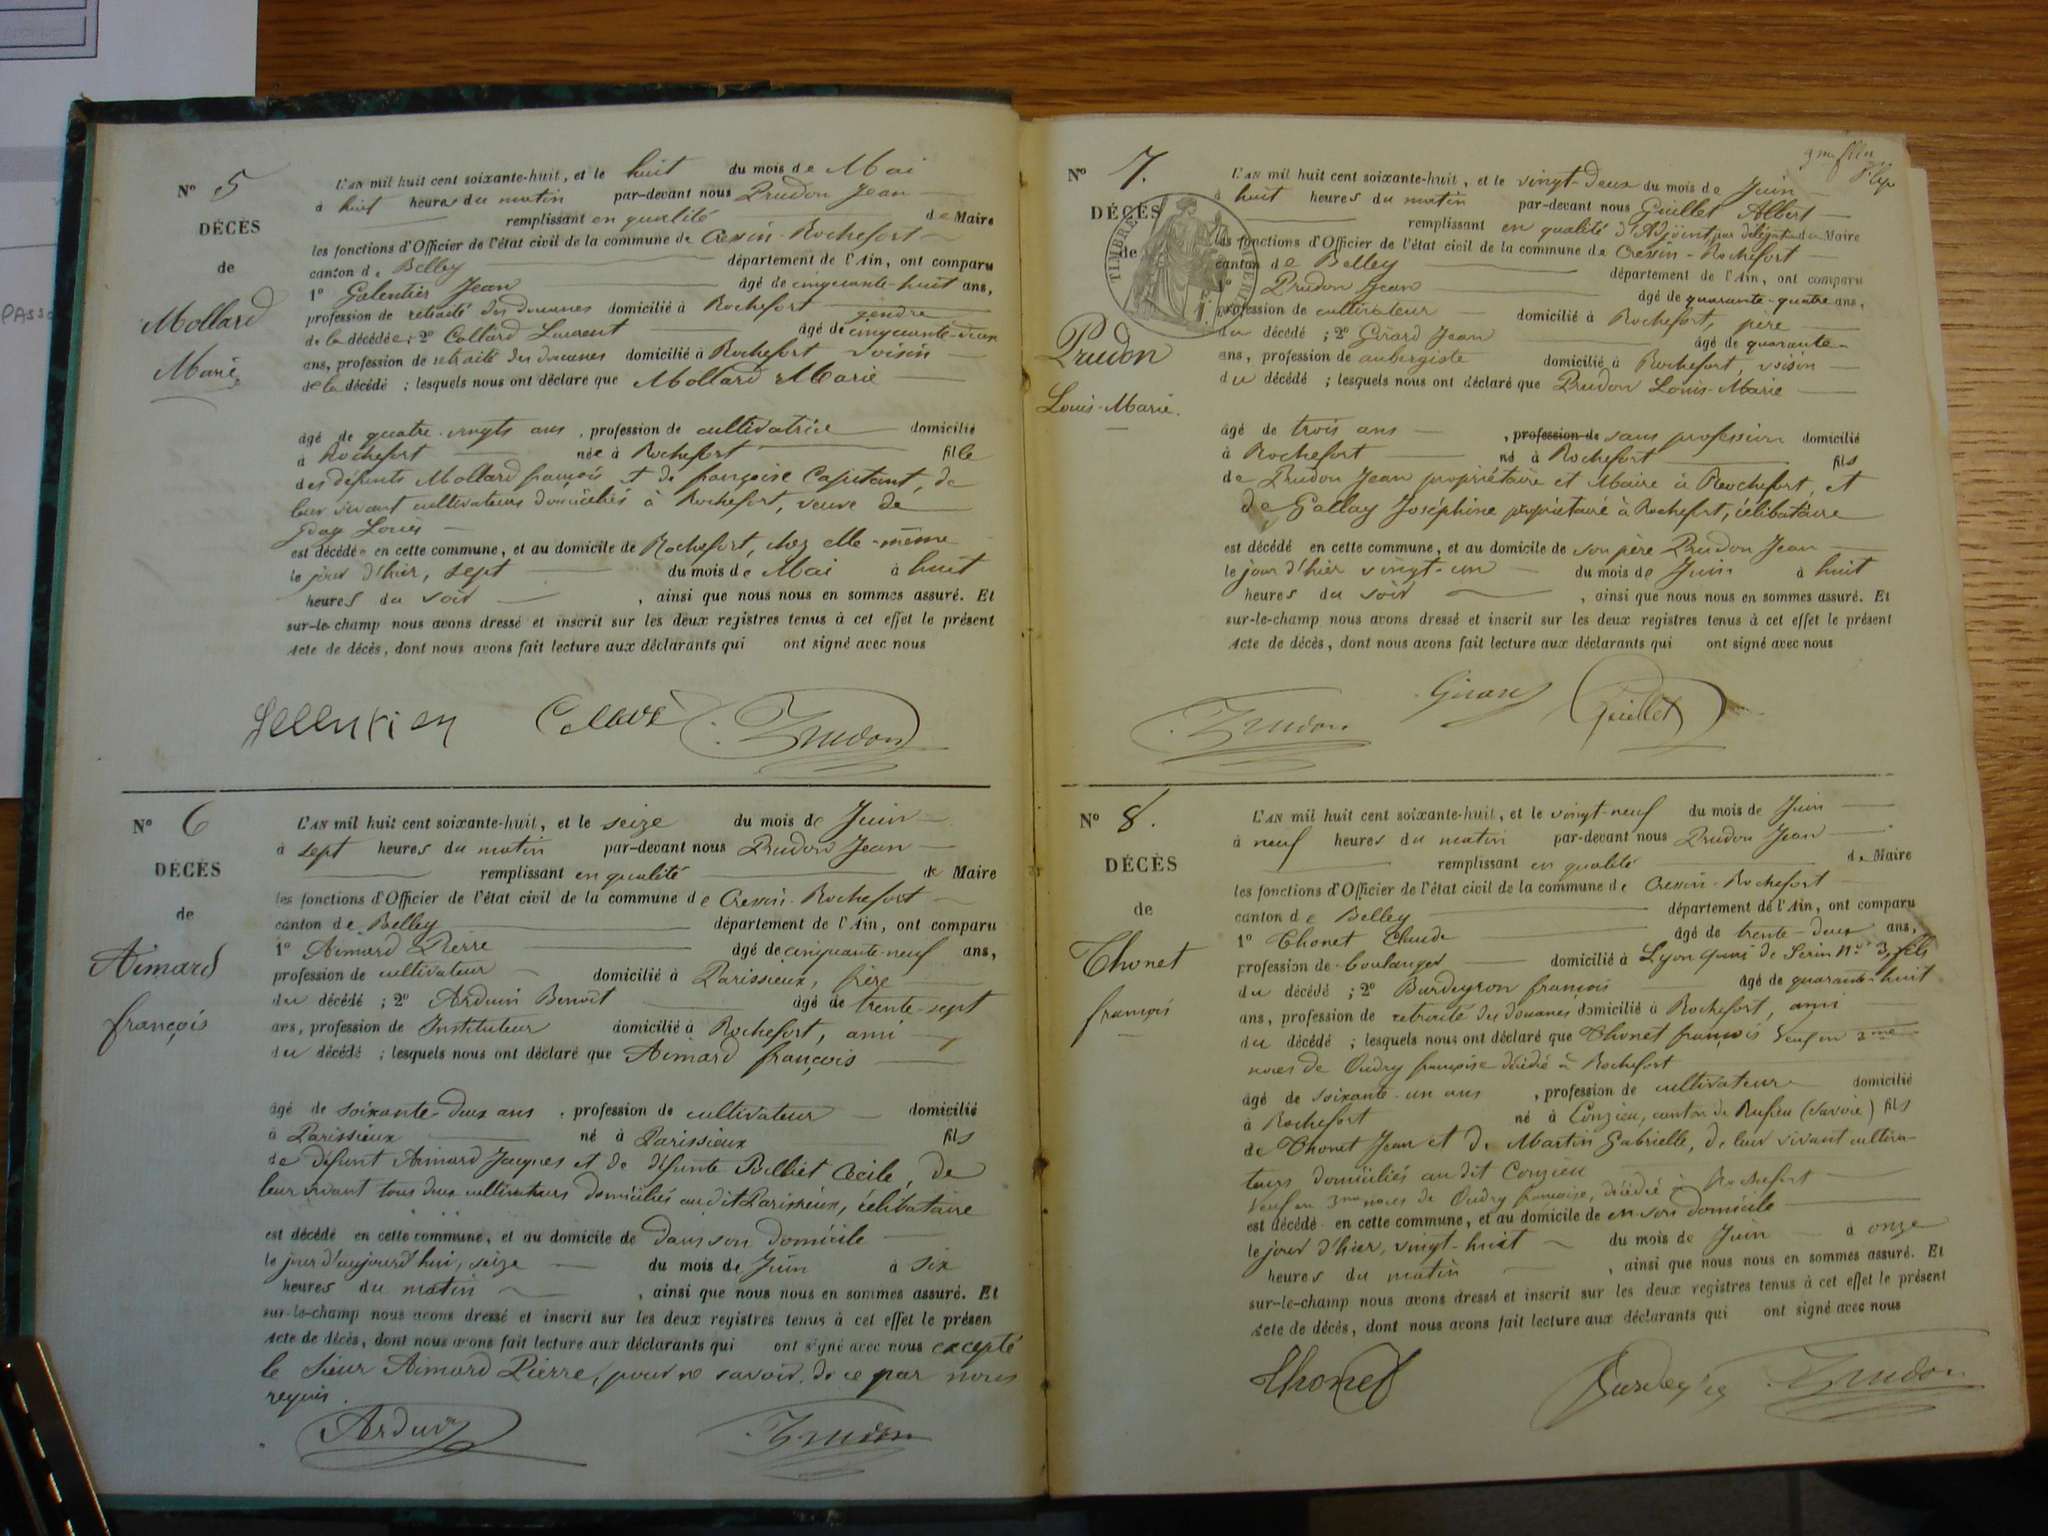 PASSO
N° 5
DÉCÈS
de
Mollard
Marie
L'AN mil huit cent soixante-huit, et le huit du mois de Mai
à huit heures du matin par-devant nous Prudon Jean
remplissant en qualité de Maire
les fonctions d'Officier de l'état civil de la commune de Cressin-Rochefort
canton de Belley département de l'Ain, ont comparu
1° Galentier Jean âgé de cinquante-huit ans,
profession de retraité des douanes domicilié à Rochefort gendre
de la décédée ; 2° Collard Laurent âgé de cinquante-deux
ans, profession de retraité des douanes domicilié à Rochefort voisin
de la décédé ; lesquels nous ont déclaré que Mollard Marie
âgé de quatre-vingts ans, profession de cultivatrice domicilié
à Rochefort née à Rochefort fille
des défunts Mollard françois et de françoise Capitant, de
leur vivant cultivateurs domiciliés à Rochefort, veuve de
Goay Louis
est décédée en cette commune, et au domicile de Rochefort, chez elle-même
le jour d'hier, sept du mois de Mai à huit
heures du soir, ainsi que nous nous en sommes assuré. Et
sur-le-champ nous avons dressé et inscrit sur les deux registres tenus à cet effet le présent
acte de décès, dont nous avons fait lecture aux déclarants qui ont signé avec nous
Prudon
N° 6
DÉCÈS
de
Aimard
françois
L'AN mil huit cent soixante-huit, et le seize du mois de Juin
à sept heures du matin par-devant nous Prudon Jean
remplissant en qualité de Maire
les fonctions d'Officier de l'état civil de la commune de Cressin-Rochefort
canton de Belley département de l'Ain, ont comparu
1° Aimard Pierre âgé de cinquante-neuf ans,
profession de cultivateur domicilié à Parissieux, frère
du décédé ; 2° Arduin Benoît âgé de trente-sept
ans, profession de Instituteur domicilié à Rochefort, ami
du décédé ; lesquels nous ont déclaré que Aimard françois
âgé de soixante-deux ans, profession de cultivateur domicilié
à Parissieux né à Parissieux fils
de défunt Aimard Jacques et de défunte Billiet Cécile, de
leur vivant tous deux cultivateurs domiciliés au dit Parissieux, célibataire
est décédé en cette commune, et au domicile de dans son domicile
le jour d'aujourd'hui, seize du mois de Juin à six
heures du matin, ainsi que nous nous en sommes assuré. Et
sur-le-champ nous avons dressé et inscrit sur les deux registres tenus à cet effet le présen
acte de décès, dont nous avons fait lecture aux déclarants qui ont signé avec nous excepté
le sieur Aimard Pierre, pour ne savoir, de ce par nous
requis.
Arduin Prudon
N° 7.
DÉCÈS
de
TIMBRE
Prudon
Louis-Marie.
L'AN mil huit cent soixante-huit, et le vingt-deux du mois de Juin
à huit heures du matin par-devant nous Guillet Albert
remplissant en qualité d'Adjoint par délégation du Maire
les fonctions d'Officier de l'état civil de la commune de Cressin-Rochefort
canton de Belley département de l'Ain, ont comparu
1° Prudon Jean âgé de quarante-quatre ans,
profession de cultivateur domicilié à Rochefort, père
du décédé ; 2° Girard Jean âgé de quarante
ans, profession de aubergiste domicilié à Rochefort, voisin
du décédé ; lesquels nous ont déclaré que Prudon Louis-Marie
âgé de trois ans, profession de sans profession domicilié
à Rochefort né à Rochefort fils
de Prudon Jean propriétaire et Maire à Rochefort, et
de Gallay Joséphine propriétaire à Rochefort, célibataire
est décédé en cette commune, et au domicile de son père Prudon Jean
le jour d'hier vingt-un du mois de Juin à huit
heures du soir, ainsi que nous nous en sommes assuré. Et
sur-le-champ nous avons dressé et inscrit sur les deux registres tenus à cet effet le présent
acte de décès, dont nous avons fait lecture aux déclarants qui ont signé avec nous
Prudon Girard Guillet
N° 8.
DÉCÈS
de
Thonet
françois
L'AN mil huit cent soixante-huit, et le vingt-neuf du mois de Juin
à neuf heures du matin par-devant nous Prudon Jean
remplissant en qualité de Maire
les fonctions d'Officier de l'état civil de la commune de Cressin-Rochefort
canton de Belley département de l'Ain, ont comparu
1° Thonet Claude âgé de trente-deux ans,
profession de boulanger domicilié à Lyon quai de Serin N° 3, fils
du décédé ; 2° Burdeyron françois âgé de quarante-huit
ans, profession de retraité des douanes domicilié à Rochefort, ami
du décédé ; lesquels nous ont déclaré que Thonet françois Veuf en 2me
noces de Oudry françoise décédée à Rochefort
âgé de soixante-un ans, profession de cultivateur domicilié
à Rochefort né à Conzieu, canton de Ruffieu (Savoie) fils
de Thonet Jean et de Martin Gabrielle, de leur vivant cultiva-
teurs domiciliés au dit Conzieu
Veuf en 3me noces de Oudry françoise, décédée à Rochefort
est décédé en cette commune, et au domicile de en son domicile
le jour d'hier, vingt-huit du mois de Juin à onze
heures du matin, ainsi que nous nous en sommes assuré. Et
sur-le-champ nous avons dressé et inscrit sur les deux registres tenus à cet effet le présent
acte de décès, dont nous avons fait lecture aux déclarants qui ont signé avec nous
Thonet Prudon